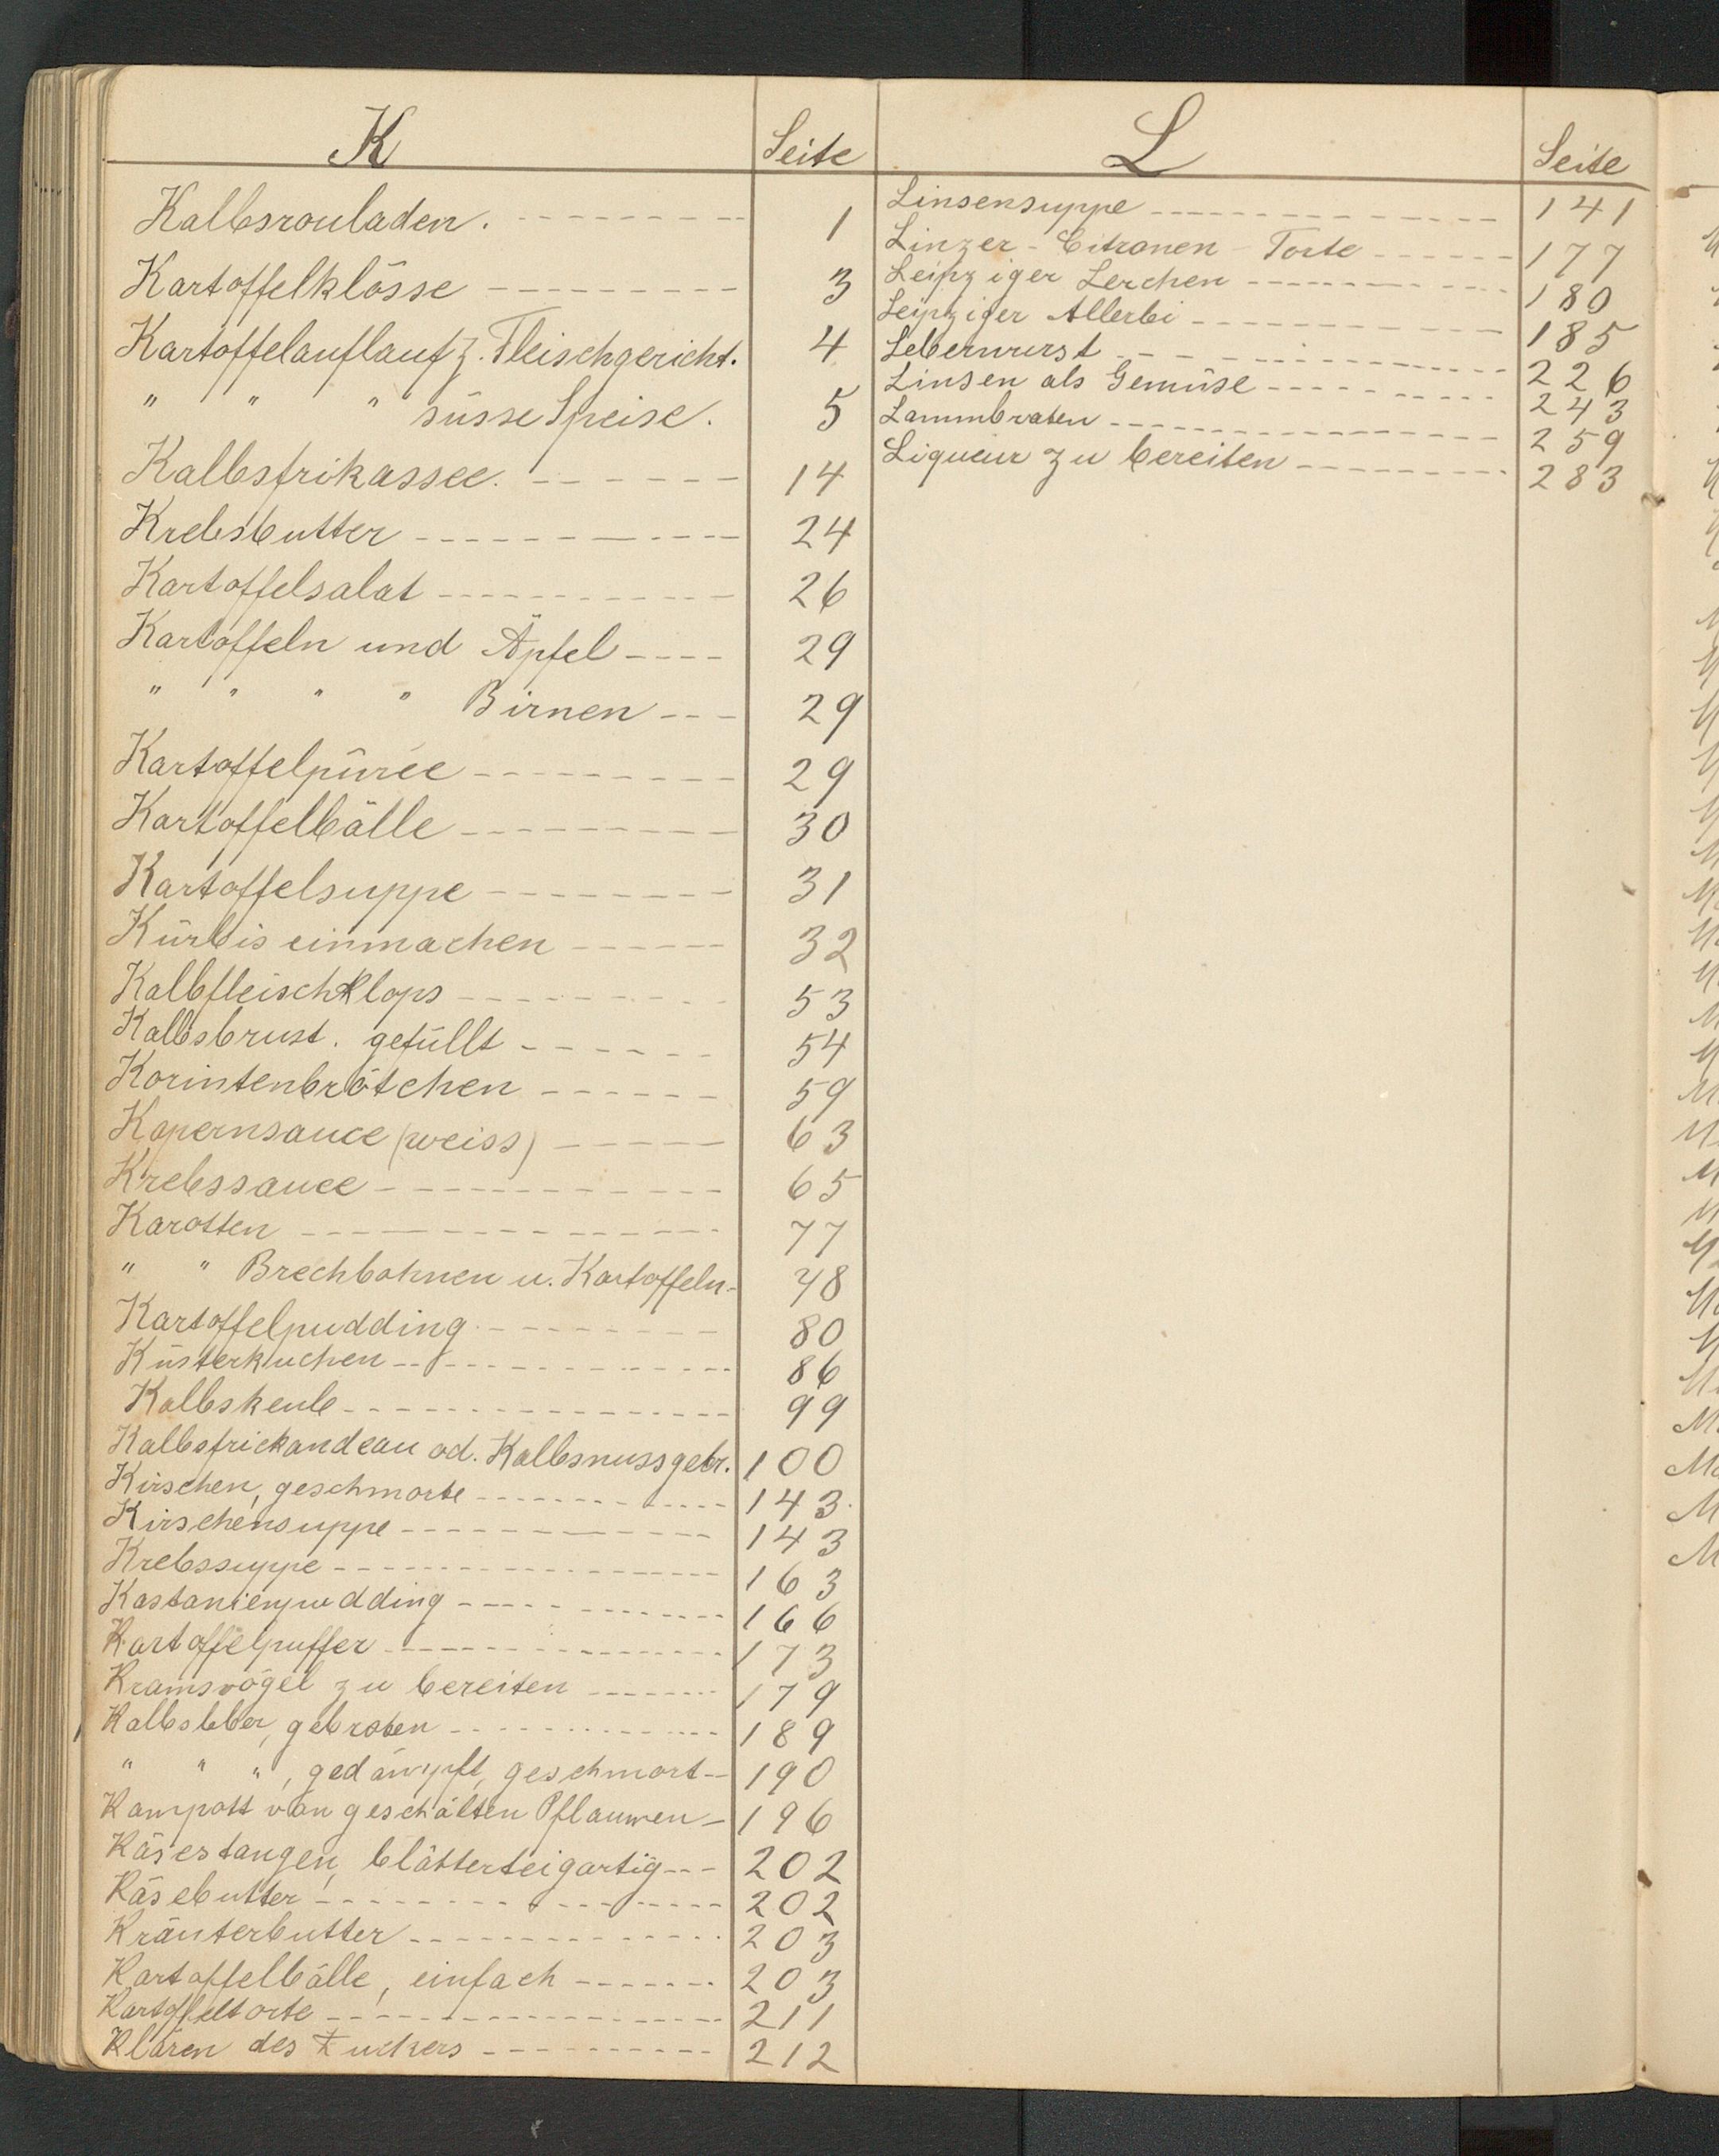 K Seite
Kalbsrouladen. 1
Kartoffelklösse 3
Kartoffelauflauf z. Fleischgericht. 4
" " " süsse Speise. 5
Kalbsfrikassee. 14
Krebsbutter 24
Kartoffelsalat 26
Kartoffeln und Äpfel 29
" " " " Birnen 29
Kartoffelpürée 29
Kartoffelbälle 30
Kartoffelsuppe 31
Kürbis einmachen 32
Kalbfleischklops 53
Kalbsbrust. gefüllt 54
Korintenbrötchen 59
Kapernsauce (weiss) 63
Krebssauce 65
Karotten 77
" " Brechbohnen u. Kartoffeln 78
Kartoffelpudding 80
Küsterkuchen 86
Kalbskeule 99
Kalbsfrickandeau od. Kalbsnuss gebr. 100
Kirschen, geschmorte 143
Kirschensuppe 143
Krebssuppe 163
Kastanienpudding 166
Kartoffelpuffer 173
Kramsvögel zu bereiten 179
Kalbsleber, gebraten 189
" " ", gedämpft, geschmort 190
Kompott von geschälten Pflaumen 196
Käsestangen, blätterteigartig 202
Käsebutter 202
Kräuterbutter 203
Kartoffelbälle, einfach 203
Kartoffeltorte 211
Klären des Zuckers 212
L Seite
Linsensuppe 141
Linzer-Citronen-Torte 177
Leipziger Lerchen 180
Leipziger Allerlei 185
Leberwurst 226
Linsen als Gemüse 243
Lammbraten 259
Liqueur zu bereiten 283